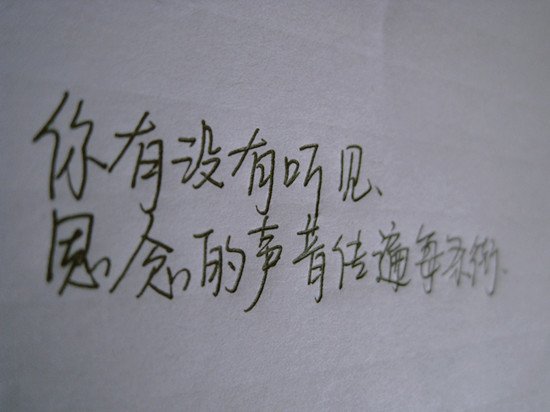 你有没有听见、
思念的声音传遍每条街.